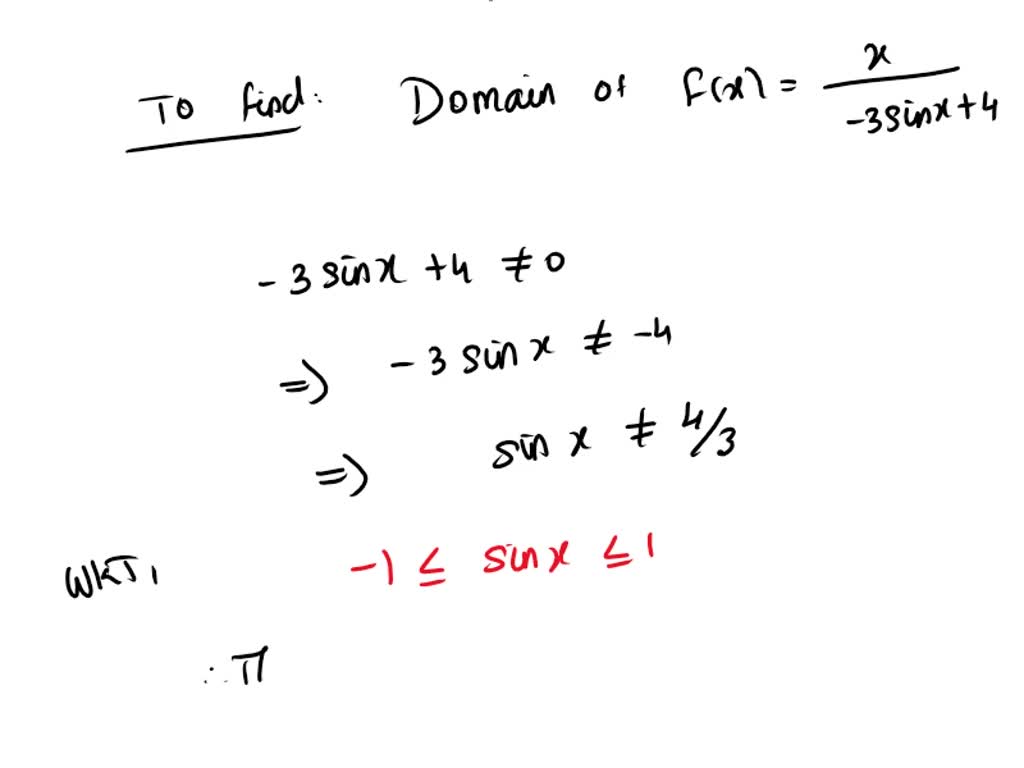 To find: Domain of f(x) = x / -3sinx+4
-3 sinx +4 ≠ 0
=) -3 sin x ≠ -4
=) sin x ≠ 4/3
WKT, -1 ≤ sinx ≤ 1
∴